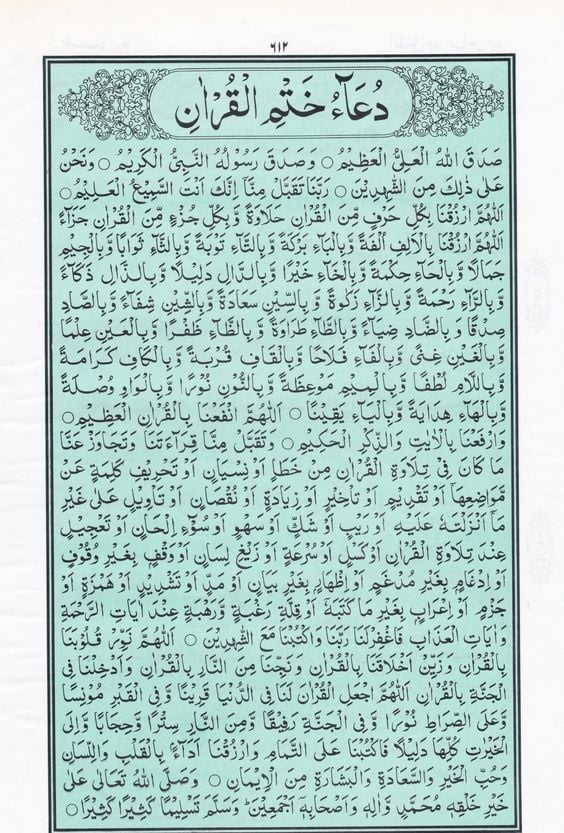 ٦١٢
دُعَآءُ خَتْمِ الْقُرْاٰنِ
صَدَقَ اللّٰهُ الْعَلِيُّ الْعَظِيْمُ ○ وَصَدَقَ رَسُوْلُهُ النَّبِيُّ الْكَرِيْمُ ○ وَنَحْنُ
عَلٰى ذٰلِكَ مِنَ الشّٰهِدِيْنَ ○ رَبَّنَا تَقَبَّلْ مِنَّا اِنَّكَ اَنْتَ السَّمِيْعُ الْعَلِيْمُ ○
اَللّٰهُمَّ ارْزُقْنَا بِكُلِّ حَرْفٍ مِّنَ الْقُرْاٰنِ حَلَاوَةً وَّبِكُلِّ جُزْءٍ مِّنَ الْقُرْاٰنِ جَزَآءً
اَللّٰهُمَّ ارْزُقْنَا بِالْاَلِفِ اُلْفَةً وَّبِالْبَاءِ بَرَكَةً وَّبِالتَّاءِ تَوْبَةً وَّبِالثَّاءِ ثَوَابًا وَّبِالْجِيْمِ
جَمَالًا وَّبِالْحَاءِ حِكْمَةً وَّبِالْخَاءِ خَيْرًا وَّبِالدَّالِ دَلِيْلًا وَّبِالذَّالِ ذَكَآءً
وَّبِالرَّاءِ رَحْمَةً وَّبِالزَّاءِ زَكٰوةً وَّبِالسِّيْنِ سَعَادَةً وَّبِالشِّيْنِ شِفَآءً وَّبِالصَّادِ
صِدْقًا وَّبِالضَّادِ ضِيَآءً وَّبِالطَّاءِ طَرَاوَةً وَّبِالظَّاءِ ظَفْرًا وَّبِالْعَيْنِ عِلْمًا
وَّبِالْغَيْنِ غِنًى وَّبِالْفَاءِ فَلَاحًا وَّبِالْقَافِ قُرْبَةً وَّبِالْكَافِ كَرَامَةً
وَّبِاللَّامِ لُطْفًا وَّبِالْمِيْمِ مَوْعِظَةً وَّبِالنُّوْنِ نُوْرًا وَّبِالْوَاوِ وُصْلَةً
وَّبِالْهَاءِ هِدَايَةً وَّبِالْيَاءِ يَقِيْنًا ○ اَللّٰهُمَّ انْفَعْنَا بِالْقُرْاٰنِ الْعَظِيْمِ ○
وَارْفَعْنَا بِالْاٰيٰتِ وَالذِّكْرِ الْحَكِيْمِ ○ وَتَقَبَّلْ مِنَّا قِرَآءَتَنَا وَتَجَاوَزْ عَنَّا
مَا كَانَ فِيْ تِلَاوَةِ الْقُرْاٰنِ مِنْ خَطَاٍ اَوْ نِسْيَانٍ اَوْ تَحْرِيْفِ كَلِمَةٍ عَنْ
مَّوَاضِعِهَا اَوْ تَقْدِيْمٍ اَوْ تَاْخِيْرٍ اَوْ زِيَادَةٍ اَوْ نُقْصَانٍ اَوْ تَاْوِيْلٍ عَلٰى غَيْرِ
مَآ اَنْزَلْتَهٗ عَلَيْهِ اَوْ رَيْبٍ اَوْ شَكٍّ اَوْ سَهْوٍ اَوْ سُوْٓءِ اِلْحَانٍ اَوْ تَعْجِيْلٍ
عِنْدَ تِلَاوَةِ الْقُرْاٰنِ اَوْ كَسَلٍ اَوْ سُرْعَةٍ اَوْ زَيْغِ لِسَانٍ اَوْ وَقْفٍ بِغَيْرِ وُقُوْفٍ
اَوْ اِدْغَامٍ بِغَيْرِ مُدْغَمٍ اَوْ اِظْهَارٍ بِغَيْرِ بَيَانٍ اَوْ مَدٍّ اَوْ تَشْدِيْدٍ اَوْ هَمْزَةٍ اَوْ
جَزْمٍ اَوْ اِعْرَابٍ بِغَيْرِ مَا كَتَبَهٗ اَوْ قِلَّةِ رَغْبَةٍ وَّرَهْبَةٍ عِنْدَ اٰيَاتِ الرَّحْمَةِ
وَاٰيَاتِ الْعَذَابِ فَاغْفِرْلَنَا رَبَّنَا وَاكْتُبْنَا مَعَ الشّٰهِدِيْنَ ○ اَللّٰهُمَّ نَوِّرْ قُلُوْبَنَا
بِالْقُرْاٰنِ وَزَيِّنْ اَخْلَاقَنَا بِالْقُرْاٰنِ وَنَجِّنَا مِنَ النَّارِ بِالْقُرْاٰنِ وَاَدْخِلْنَا فِى
الْجَنَّةِ بِالْقُرْاٰنِ اَللّٰهُمَّ اجْعَلِ الْقُرْاٰنَ لَنَا فِى الدُّنْيَا قَرِيْنًا وَّفِى الْقَبْرِ مُوْنِسًا
وَّعَلَى الصِّرَاطِ نُوْرًا وَّفِى الْجَنَّةِ رَفِيْقًا وَّمِنَ النَّارِ سِتْرًا وَّحِجَابًا وَّاِلَى
الْخَيْرٰتِ كُلِّهَا دَلِيْلًا فَاكْتُبْنَا عَلَى التَّمَامِ وَارْزُقْنَا اَدَآءً بِالْقَلْبِ وَاللِّسَانِ
وَحُبِّ الْخَيْرِ وَالسَّعَادَةِ وَالْبَشَارَةِ مِنَ الْاِيْمَانِ ○ وَصَلَّى اللّٰهُ تَعَالٰى عَلٰى
خَيْرِ خَلْقِهٖ مُحَمَّدٍ وَّاٰلِهٖ وَاَصْحَابِهٖٓ اَجْمَعِيْنَ وَسَلَّمَ تَسْلِيْمًا كَثِيْرًا كَثِيْرًا ○